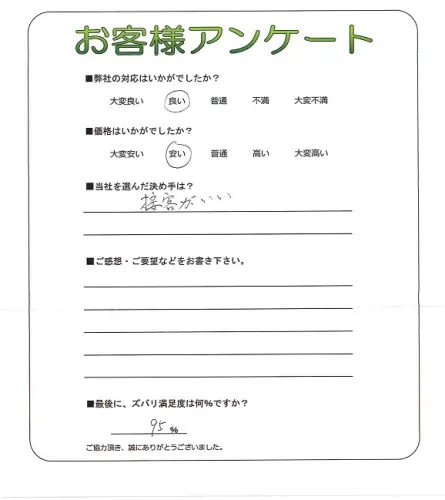 お客様アンケート
■弊社の対応はいかがでしたか？
大変良い 良い 普通 不満 大変不満
■価格はいかがでしたか？
大変安い 安い 普通 高い 大変高い
■当社を選んだ決め手は？
接客がいい
■ご感想・ご要望などをお書き下さい。
■最後に、ズバリ満足度は何％ですか？
95 %
ご協力頂き、誠にありがとうございました。